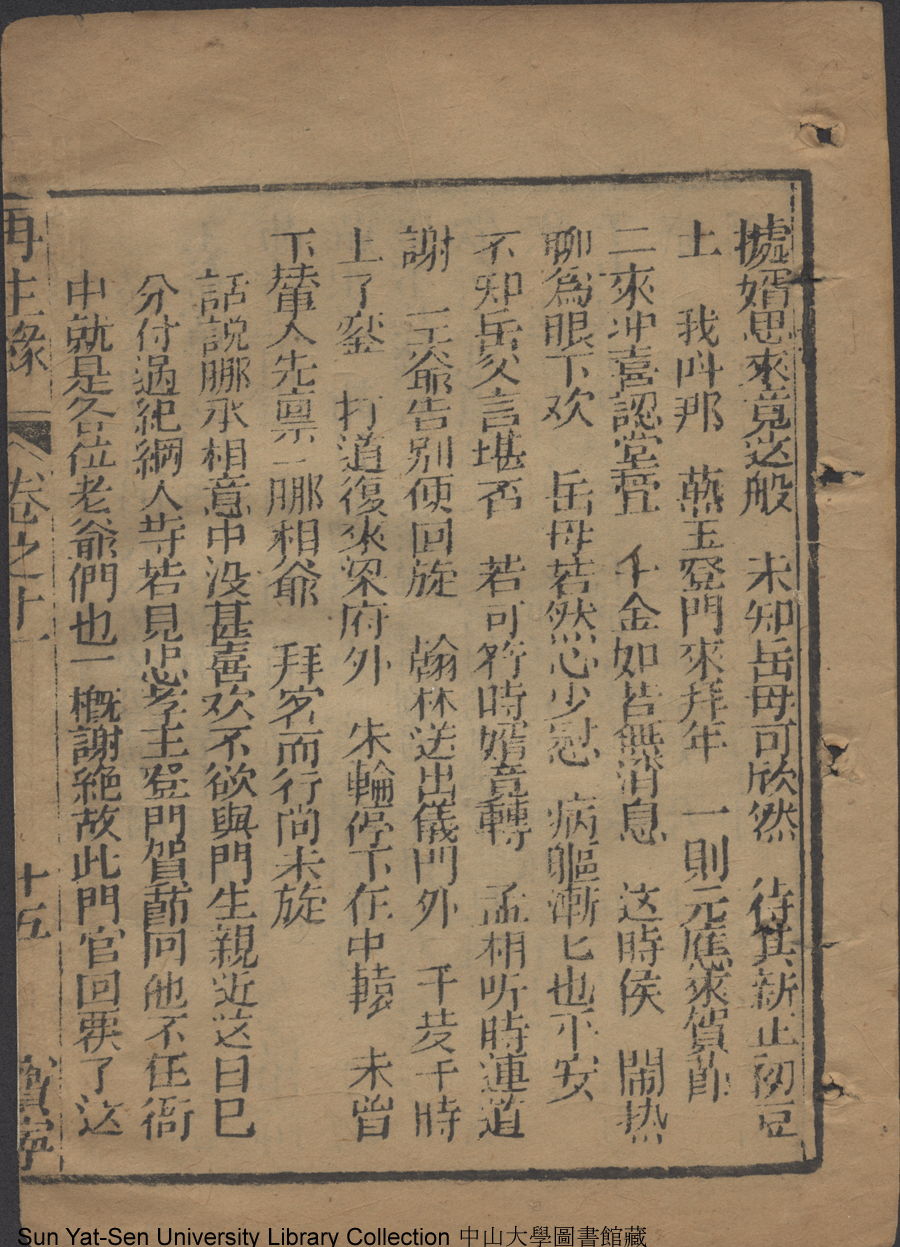 據婿思來竟这般　未知岳母可欣然　待其新正初豆
土　我叫那　燕玉登門來拜年　一則元應來賀節
二來冲喜認堂萱　千金如若無消息　这時侯　閙热
聊為眼下欢　岳母若然心少慰　病軀漸匕也平安
不知岳父言堪否　若可符時婿竟轉　孟相听時連道
謝　王爺告别便回旋　翰林送出儀門外　千芳千時
上了鑾　打道復來梁府外　朱輪停下在中轅　未曾
下輦人先禀　酈相爺　拜客而行尚未旋
話說酈承相意中没甚喜欢不欲與門生親近这日已
分付過紀綱人寺若見忠孝王登門賀節囘他不在衙
中就是各位老爺們也一概謝絶故此門官回覆了这
再生緣　卷之十一　十五　寳寧
Sun Yat-Sen University Library Collection 中山大學圖書館藏